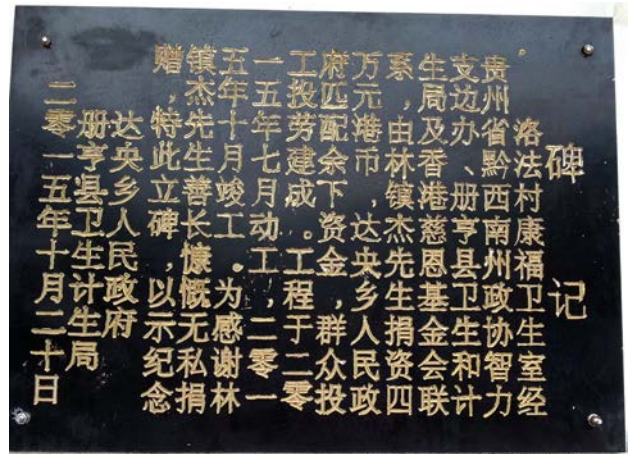 碑记
洛法村康福卫生室经
贵州省黔西南州政协智力
支边办、册亨县卫生和计
生局及香港慈恩基金会联
系,由林镇杰先生捐资四
万元港币,达央乡人民政
府匹配余下资金,群众投
工投劳建成。工程于二零
一五年七月动工,二零一
五年十月竣工。为感谢林
镇杰先生善长慷慨无私捐
赠,特此立碑,以示纪念
达央乡人民政府
册亨县卫生计生局
二零一五年十月二十日